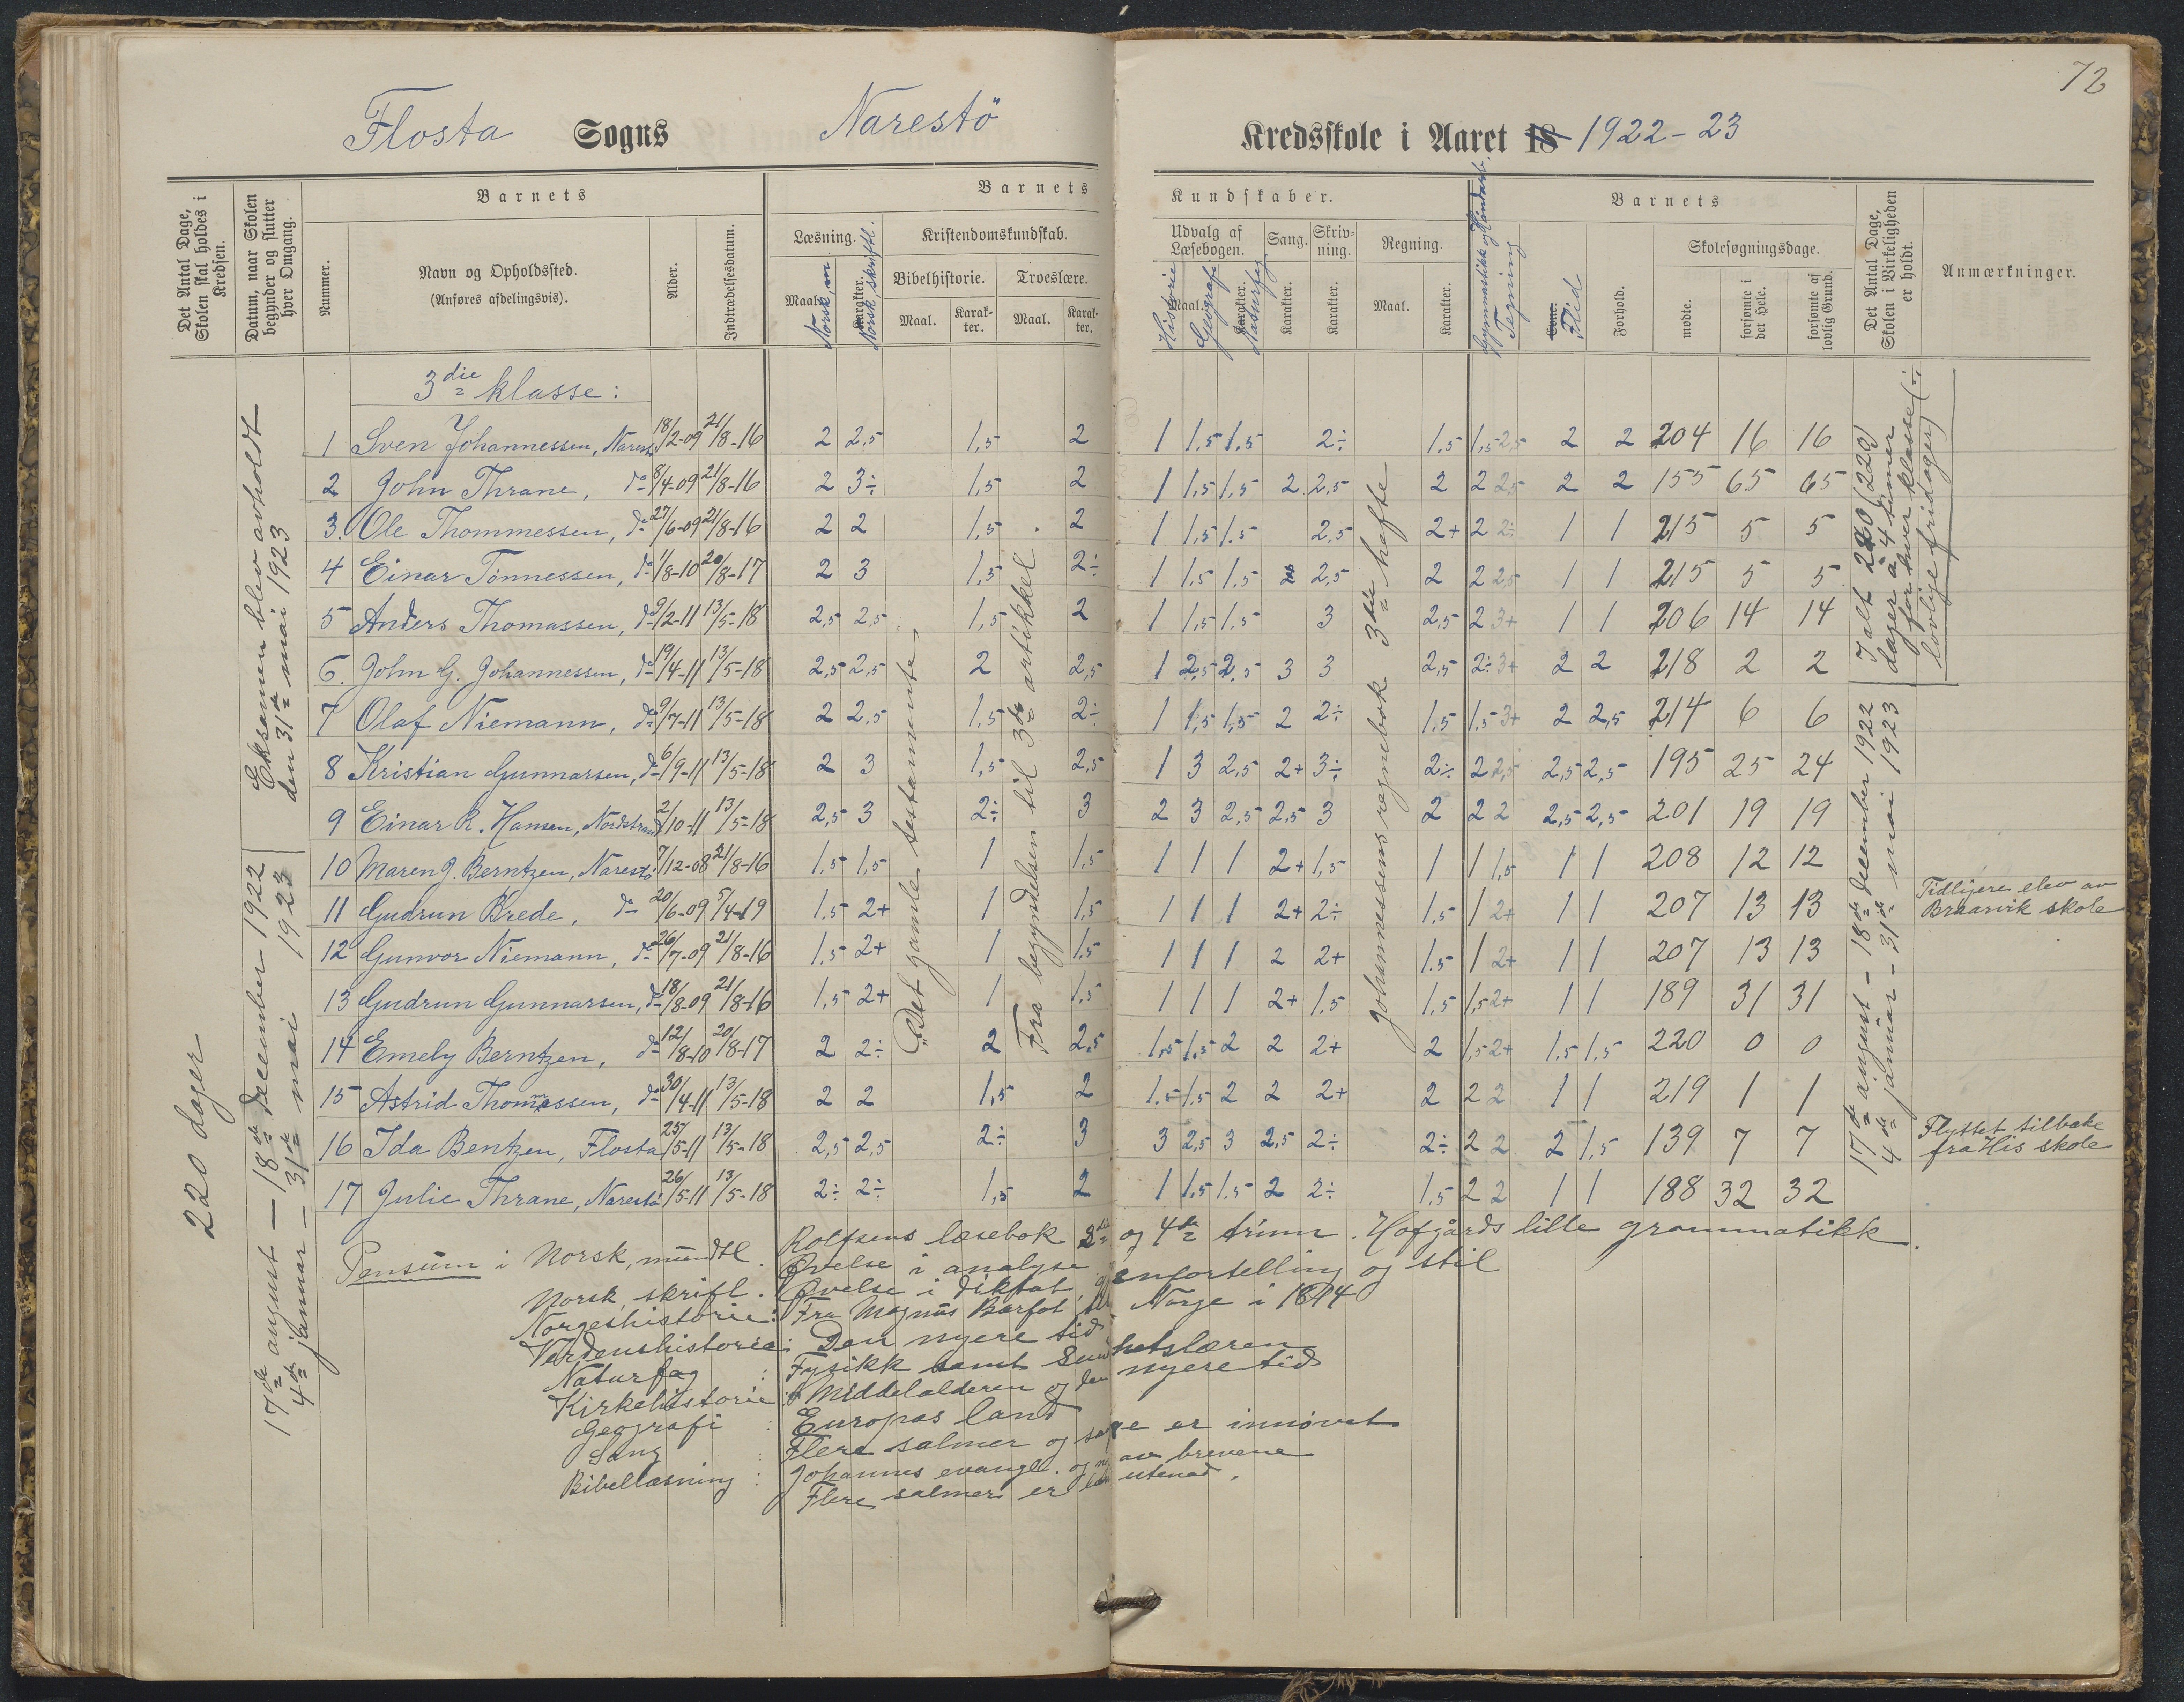 72
Flosta Sogns Narestö Kredsskole i Aaret 18 1922-23
Det Antal Dage, Skolen skal holdes i Kredsen.
Datum, naar Skolen begynder og slutter hver Omgang.
Barnets
Nummer.
Navn og Opholdssted. (Anføres afdelingsvis).
Alder.
Indtrædelsesdatum.
Barnets Kundskaber.
Læsning.
Maal. Norsk, m.
Karakter. Norsk, skriftl.
Kristendomskundskab.
Bibelhistorie.
Maal.
Karakter.
Troeslære.
Maal.
Karakter.
Udvalg af Læsebogen.
Maal. Historie
Geografi
Karakter. Naturfag
Sang.
Karakter.
Skrivning.
Karakter.
Regning.
Maal.
Karakter.
Gymnastikk og Håndarb.
Tegning
Barnets
Evne. Flid
Forhold.
Skolesøgningsdage.
mødte.
forsømte i det Hele.
forsømte af lovlig Grund.
Det Antal Dage, Skolen i Virkeligheden er holdt.
Anmærkninger.
3die klasse:
1 Sven Johannessen, Narestö 18/2-09 21/8-16 2 2,5 1,5 2 1 1,5 1,5 2÷ 1,5 1,5 2,5 2 2 204 16 16
2 John Thrane, do 8/4-09 21/8-16 2 3÷ 1,5 2 1 1,5 1,5 2 2,5 2 2 2,5 2 2 155 65 65
3. Ole Thommessen, do 27/6-09 21/8-16 2 2 1,5 2 1 1,5 1,5 2,5 2+ 2 2÷ 1 1 215 5 5
4 Einar Tönnessen, do 1/8-10 20/8-17 2 3 1,5 2÷ 1 1,5 1,5 2 2,5 2 2 2,5 1 1 215 5 5
5 Anders Thomassen, do 9/2-11 13/5-18 2,5 2,5 1,5 2 1 1,5 1,5 3 2,5 2 3+ 1 1 206 14 14
6. John G. Johannessen, do 19/4-11 13/5-18 2,5 2,5 2 2,5 1 2,5 2,5 3 3 2,5 2÷ 3+ 2 2 218 2 2
7 Olaf Niemann, do 9/7-11 13/5-18 2 2,5 1,5 2÷ 1 1,5 1,5 2 2÷ 1,5 1,5 3+ 2 2,5 214 6 6
8 Kristian Gunnarsen, do 6/9-11 13/5-18 2 3 1,5 2,5 1 3 2,5 2+ 3÷ 2÷ 2 2,5 2,5 2,5 195 25 24
9 Einar R. Hansen, Nordstrand 2/10-11 13/5-18 2,5 3 2÷ 3 2 3 2,5 2,5 3 2 2 2 2,5 2,5 201 19 19
10 Maren J. Berntzen, Narestö 7/12-08 21/8-16 1,5 1,5 1 1,5 1 1 1 2+ 1,5 1 1 1,5 1 1 208 12 12
11 Gudrun Brede, do 20/6-09 5/4-19 1,5 2+ 1 1,5 1 1 1 2+ 2÷ 1,5 1 2+ 1 1 207 13 13 Tidligere elev av Braarvik skole
12 Gunvor Niemann, do 26/7-09 21/8-16 1,5 2+ 1 1,5 1 1 1 2 2+ 1,5 1 2+ 1 1 207 13 13
13 Gudrun Gunnarsen, do 18/8-09 21/8-16 1,5 2+ 1 1,5 1 1 1 2+ 1,5 1,5 1,5 2+ 1 1 189 31 31
14 Emely Berntzen, do 12/8-10 20/8-17 2 2÷ 2 2,5 1,5 1,5 2 2 2+ 2 1,5 2+ 1,5 1,5 220 0 0
15 Astrid Thommessen, do 30/4-11 13/5-18 2 2 1,5 2 1,5 1,5 2 2 2+ 2 2 2 1 1 219 1 1
16 Ida Bentzen, Flosta 25/5-11 13/5-18 2,5 2,5 2÷ 3 3 2,5 3 2,5 2÷ 2÷ 2 2 2 1,5 139 7 7 Flyttet tilbake fra His skole
17 Julie Thrane, Narestö 26/5-11 13/5-18 2÷ 2÷ 1,5 2 1 1,5 1,5 2 2÷ 1,5 2 2 1 1 188 32 32
220 dager
17de august - 18de december 1922
4de januar - 31te mai 1923
Eksamen blev avholdt
den 31te mai 1923
"Det gamle testamente"
Fra begyndelsen til 3die artikkel
Johannessens regnebok 3die hefte
17de august - 18de december 1922
4de januar - 31te mai 1923
I alt 220 (220)
dager a 4 timer
for hver klasse (÷
lovlige fridager)
Pensum i Norsk, mundtl. Rolfsens læsebok 3die og 4de trinn. Hofgårds lille grammatikk.
Øvelse i analyse
Norsk, skriftl. Øvelse i diktat, genfortelling og stil
Norgeshistorie: Fra Magnus Barfot til Norge i 1814
Verdenshistorie: Den nyere tid
Naturfag : Fysikk samt Sundhetslæren
Kirkehistorie : Middelalderen og den nyere tid
Geografi : Europas land
Sang : Flere salmer og sange er innøvet
Bibellæsning : Johannes evangel. og av brevene
Flere salmer er lært utenad.